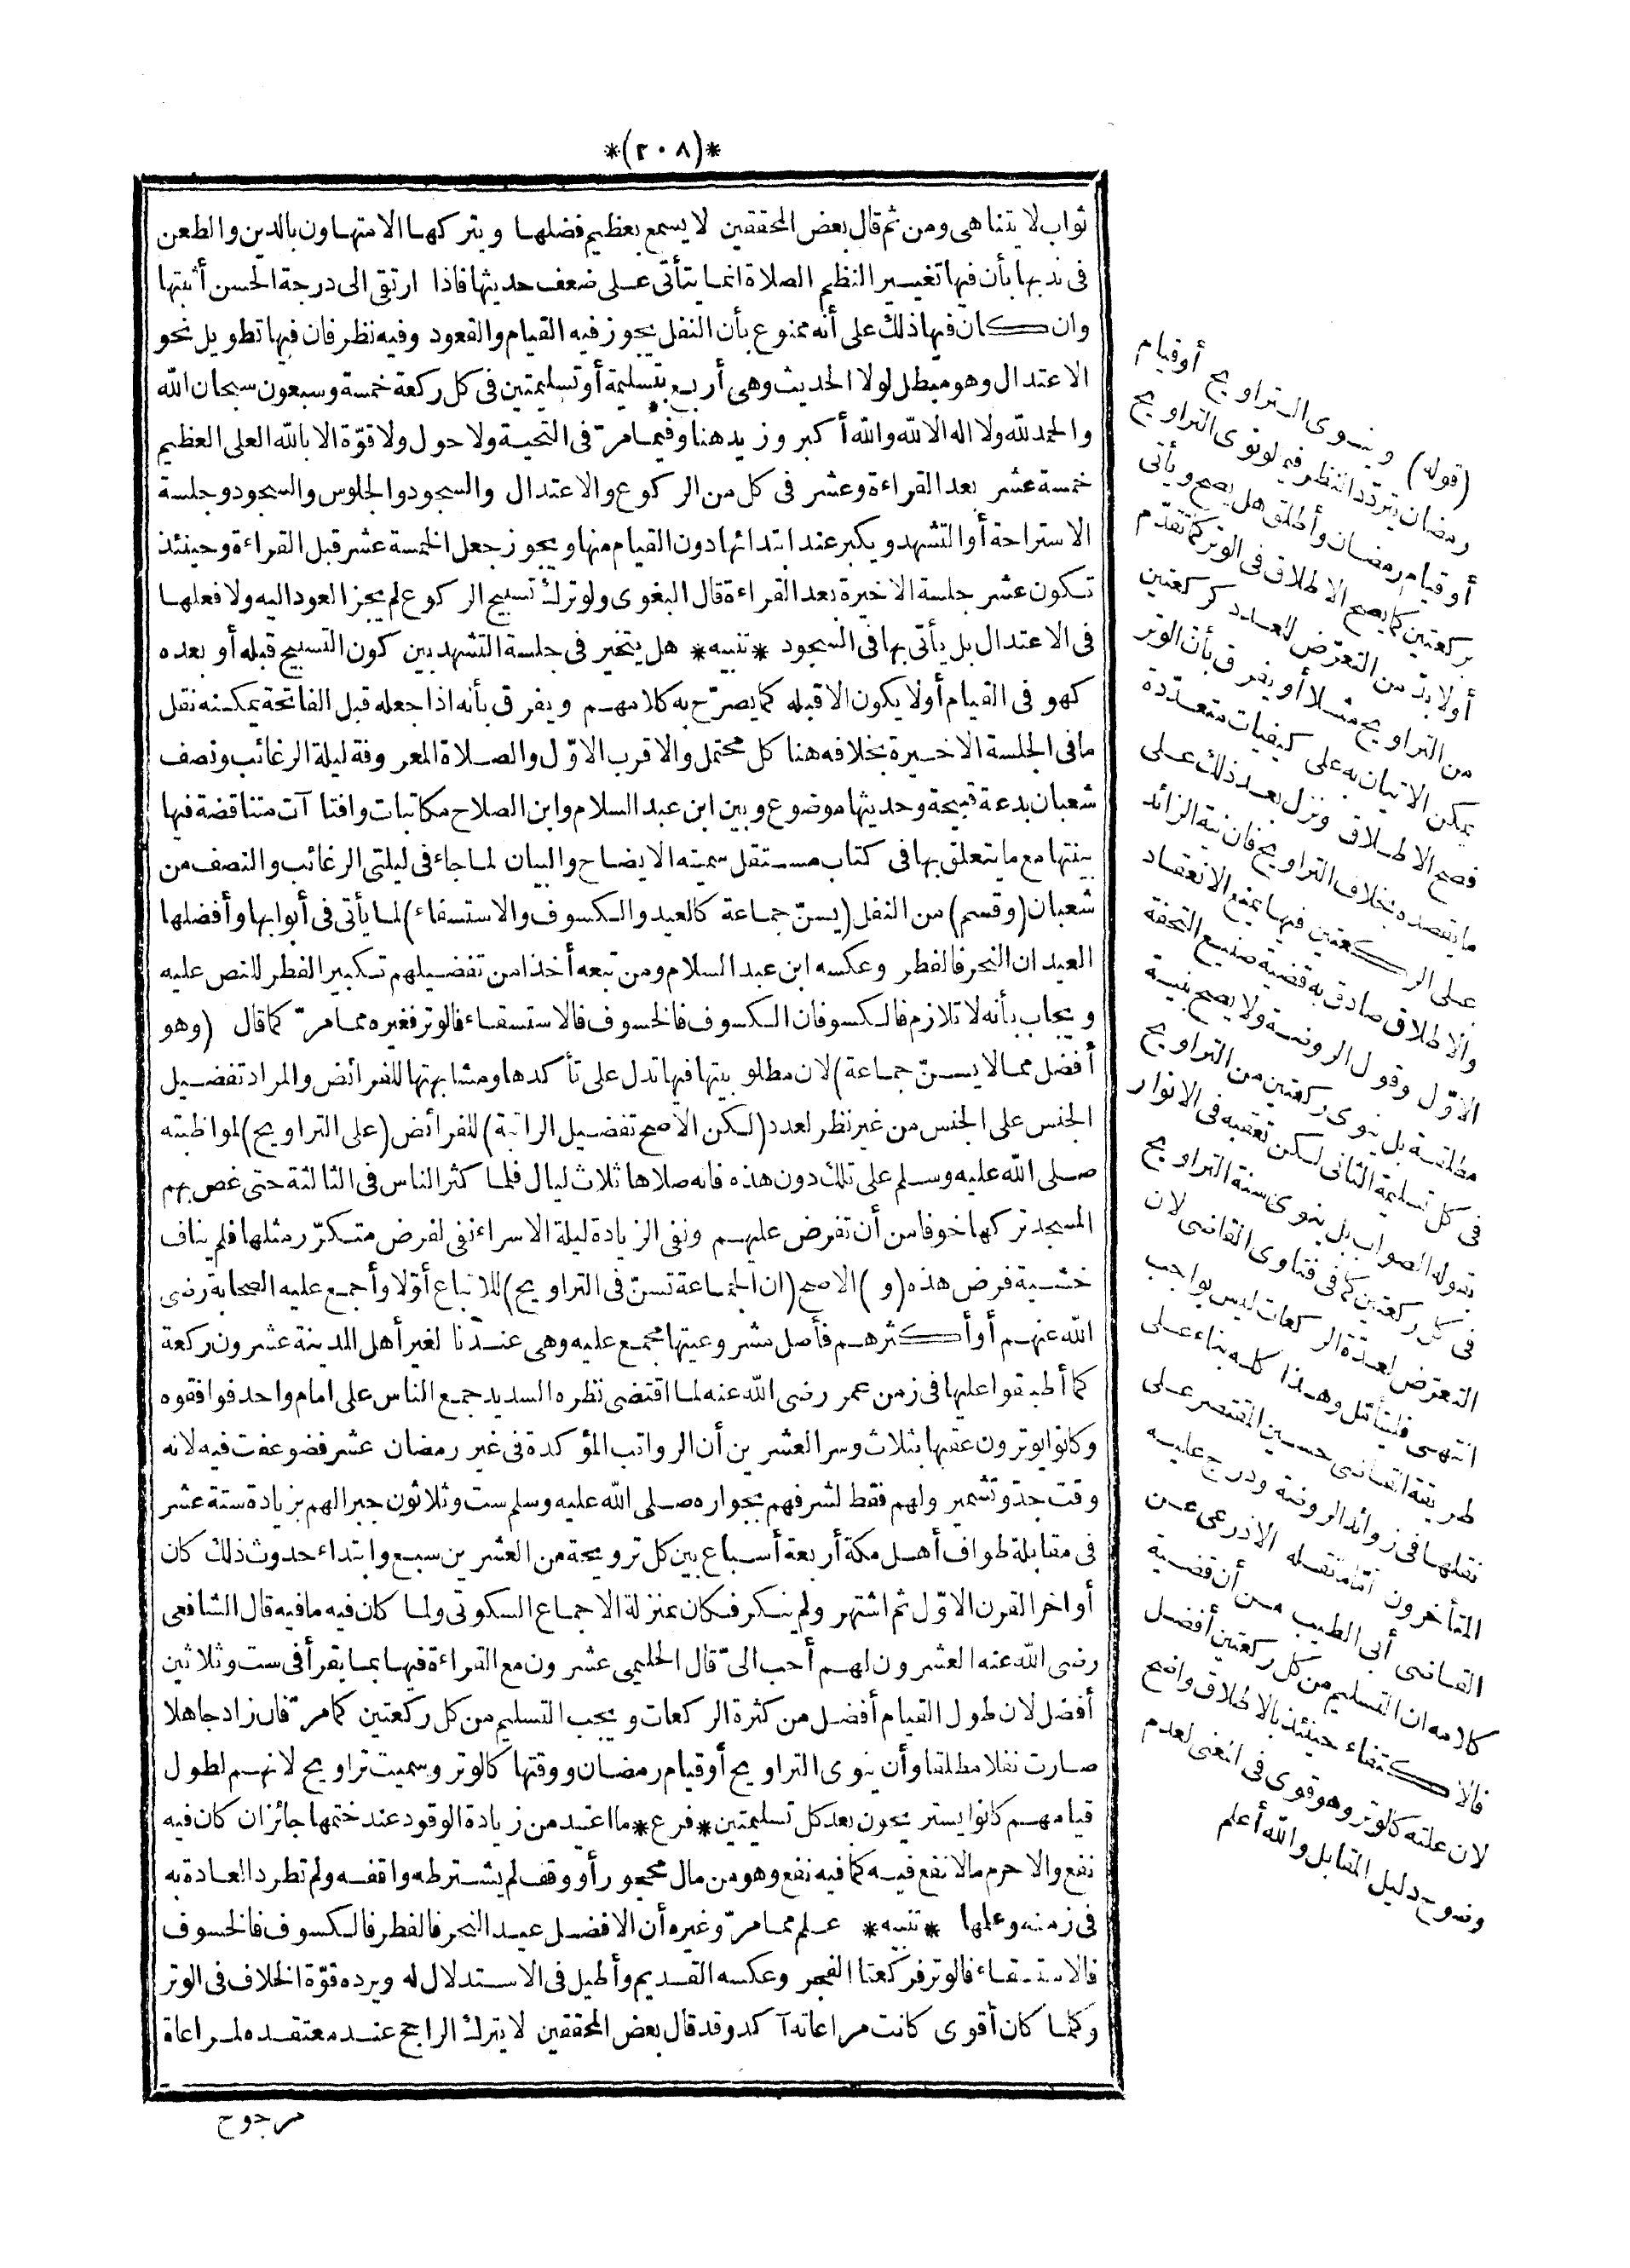 *(٢٠٨)*
ثواب لا يتناهى ومن ثم قال بعض المحققين لا يسمع بعظيم فضلها ويتركها الا متهاون بالدين والطعن
فى ندبها بأن فيها تغيير النظم الصلاة انما يتأتى على ضعف حديثها فاذا ارتقى الى درجة الحسن أثبتها
وان كان فيها ذلك على أنه ممنوع بأن النفل يجوز فيه القيام والقعود وفيه نظر فان فيها تطويل نحو
الاعتدال وهو مبطل لولا الحديث وهى أربع بتسليمة أو تسليمتين فى كل ركعة خمسة وسبعون سبحان الله
والحمد لله ولا اله الا الله والله أكبر وزيد هنا وفيما مرّ فى التحية ولا حول ولا قوّة الا بالله العلى العظيم
خمسة عشر بعد القراءة وعشر فى كل من الركوع والاعتدال والسجود والجلوس والسجود وجلسة
الاستراحة أو التشهد ويكبر عند ابتدائها دون القيام منها ويجوز جعل الخمسة عشر قبل القراءة وحينئذ
تكون عشر جلسة الاخيرة بعد القراءة قال البغوى ولو ترك تسبيح الركوع لم يجز العود اليه ولا فعلها
فى الاعتدال بل يأتى بها فى السجود *تنبيه* هل يتخير فى جلسة التشهد بين كون التسبيح قبله أو بعده
كهو فى القيام أو لا يكون الا قبله كما يصرّح به كلامهم ويفرق بأنه اذا جعله قبل الفاتحة يمكنه نقل
ما فى الجلسة الاخيرة بخلافه هنا كل محتمل والاقرب الاوّل والصلاة المعروفة ليلة الرغائب ونصف
شعبان بدعة قبيحة وحديثها موضوع وبين ابن عبد السلام وابن الصلاح مكاتبات وافتاآت متناقضة فيها
بينتها مع ما يتعلق بها فى كتاب مستقل سميته الايضاح والبيان لما جاء فى ليلتى الرغائب والنصف من
شعبان (وقسم) من النفل (يسنّ جماعة كالعيد والكسوف والاستسقاء) لما يأتى فى أبوابها وأفضلها
العيدان النحر فالفطر وعكسه ابن عبد السلام ومن تبعه أخذا من تفضيلهم تكبير الفطر للنص عليه
ويجاب بأنه لا تلازم فالكسوفان الكسوف فالخسوف فالاستسقاء فالوتر فغيره مما مرّ كما قال (وهو
أفضل مما لا يسنّ جماعة) لان مطلوبيتها فيها تدل على تأكدها ومشابهتها للفرائض والمراد تفضيل
الجنس على الجنس من غير نظر لعدد (لكن الاصح تفضيل الراتبة) للفرائض (على التراويح) لمواظبته
صلى الله عليه وسلم على تلك دون هذه فانه صلاها ثلاث ليال فلما كثر الناس فى الثالثة حتى غص بهم
المسجد تركها خوفا من أن تفرض عليهم ونفى الزيادة ليلة الاسراء نفى لفرض متكرّر مثلها فلم يناف
خشية فرض هذه (و) الاصح (ان الجماعة تسنّ فى التراويح) للاتباع أوّلا وأجمع عليه الصحابة رضى
الله عنهم أو أكثرهم فأصل مشروعيتها مجمع عليه وهى عندنا لغير أهل المدينة عشرون ركعة
كما أطبقوا عليها فى زمن عمر رضى الله عنه لما اقتضى نظره السديد جمع الناس على امام واحد فوافقوه
وكانوا يوترون عقبها بثلاث وسر العشرين أن الرواتب المؤكدة فى غير رمضان عشر فضوعفت فيه لانه
وقت جدّ وتشمير ولهم فقط لشرفهم بجواره صلى الله عليه وسلم ست وثلاثون جبرا لهم بزيادة ستة عشر
فى مقابلة طواف أهل مكة أربعة أسباع بين كل ترويحة من العشرين سبع وابتداء حدوث ذلك كان
أواخر القرن الاوّل ثم اشتهر ولم ينكر فكان بمنزلة الاجماع السكوتى ولما كان فيه ما فيه قال الشافعى
رضى الله عنه العشرون لهم أحب الىّ قال الحليمى عشرون مع القراءة فيها بما يقرأ فى ست وثلاثين
أفضل لان طول القيام أفضل من كثرة الركعات ويجب التسليم من كل ركعتين كما مرّ فان زاد جاهلا
صارت نفلا مطلقا وأن ينوى التراويح أو قيام رمضان ووقتها كالوتر وسميت تراويح لانهم لطول
قيامهم كانوا يستريحون بعد كل تسليمتين *فرع* ما اعتيد من زيادة الوقود عند ختمها جائز ان كان فيه
نفع والا حرم ما لا نفع فيه كما فيه نفع وهو من مال محجور أو وقف لم يشترطه واقفه ولم تطرد العادة به
فى زمنه وعلمها *تنبيه* علم مما مرّ وغيره أن الافضل عيد النحر فالفطر فالكسوف فالخسوف
فالاستسقاء فالوتر فركعتا الفجر وعكسه القديم وأطيل فى الاستدلال له ويرده قوّة الخلاف فى الوتر
وكلما كان أقوى كانت مراعاته آكد وقد قال بعض المحققين لا يترك الراجح عند معتقده لمراعاة
مرجوح
(قوله) وينوى التراويح أو قيام
رمضان يتردّد النظر فيما لو نوى التراويح
أو قيام رمضان وأطلق هل يصح ويأتى
بركعتين كما يصح الاطلاق فى الوتر كما تقدّم
أو لا بدّ من التعرّض للعدد كركعتين
من التراويح مثلا أو يفرق بأن الوتر
يمكن الاتيان به على كيفيات متعدّدة
فصح الاطلاق ونزل بعد ذلك على
ما يقصده بخلاف التراويح فان نية الزائد
على الركعتين فيها يمنع الانعقاد
والاطلاق صادق به قضية صنيع التحفة
الاوّل وقول الروضة ولا يصح بنية
مطلقة بل ينوى ركعتين من التراويح
فى كل تسليمة الثانى لكن تعقبه فى الانوار
بقوله الصواب بل ينوى سنة التراويح
فى كل ركعتين كما فى فتاوى القاضى لان
التعرّض لعدّة الركعات ليس بواجب
انتهى فليتأمّل وهذا كله بناء على
طريقة القاضى حسين المقتصر على
نقلها فى زوائد الروضة ودرج عليه
المتأخرون أمّا ما نقله الاذرعى عن
القاضى أبى الطيب من أن قضية
كلامه ان التسليم من كل ركعتين أفضل
فالاكتفاء حينئذ بالاطلاق واضح
لان علته كالوتر وهو قوى فى المعنى لعدم
وضوح دليل المقابل والله أعلم